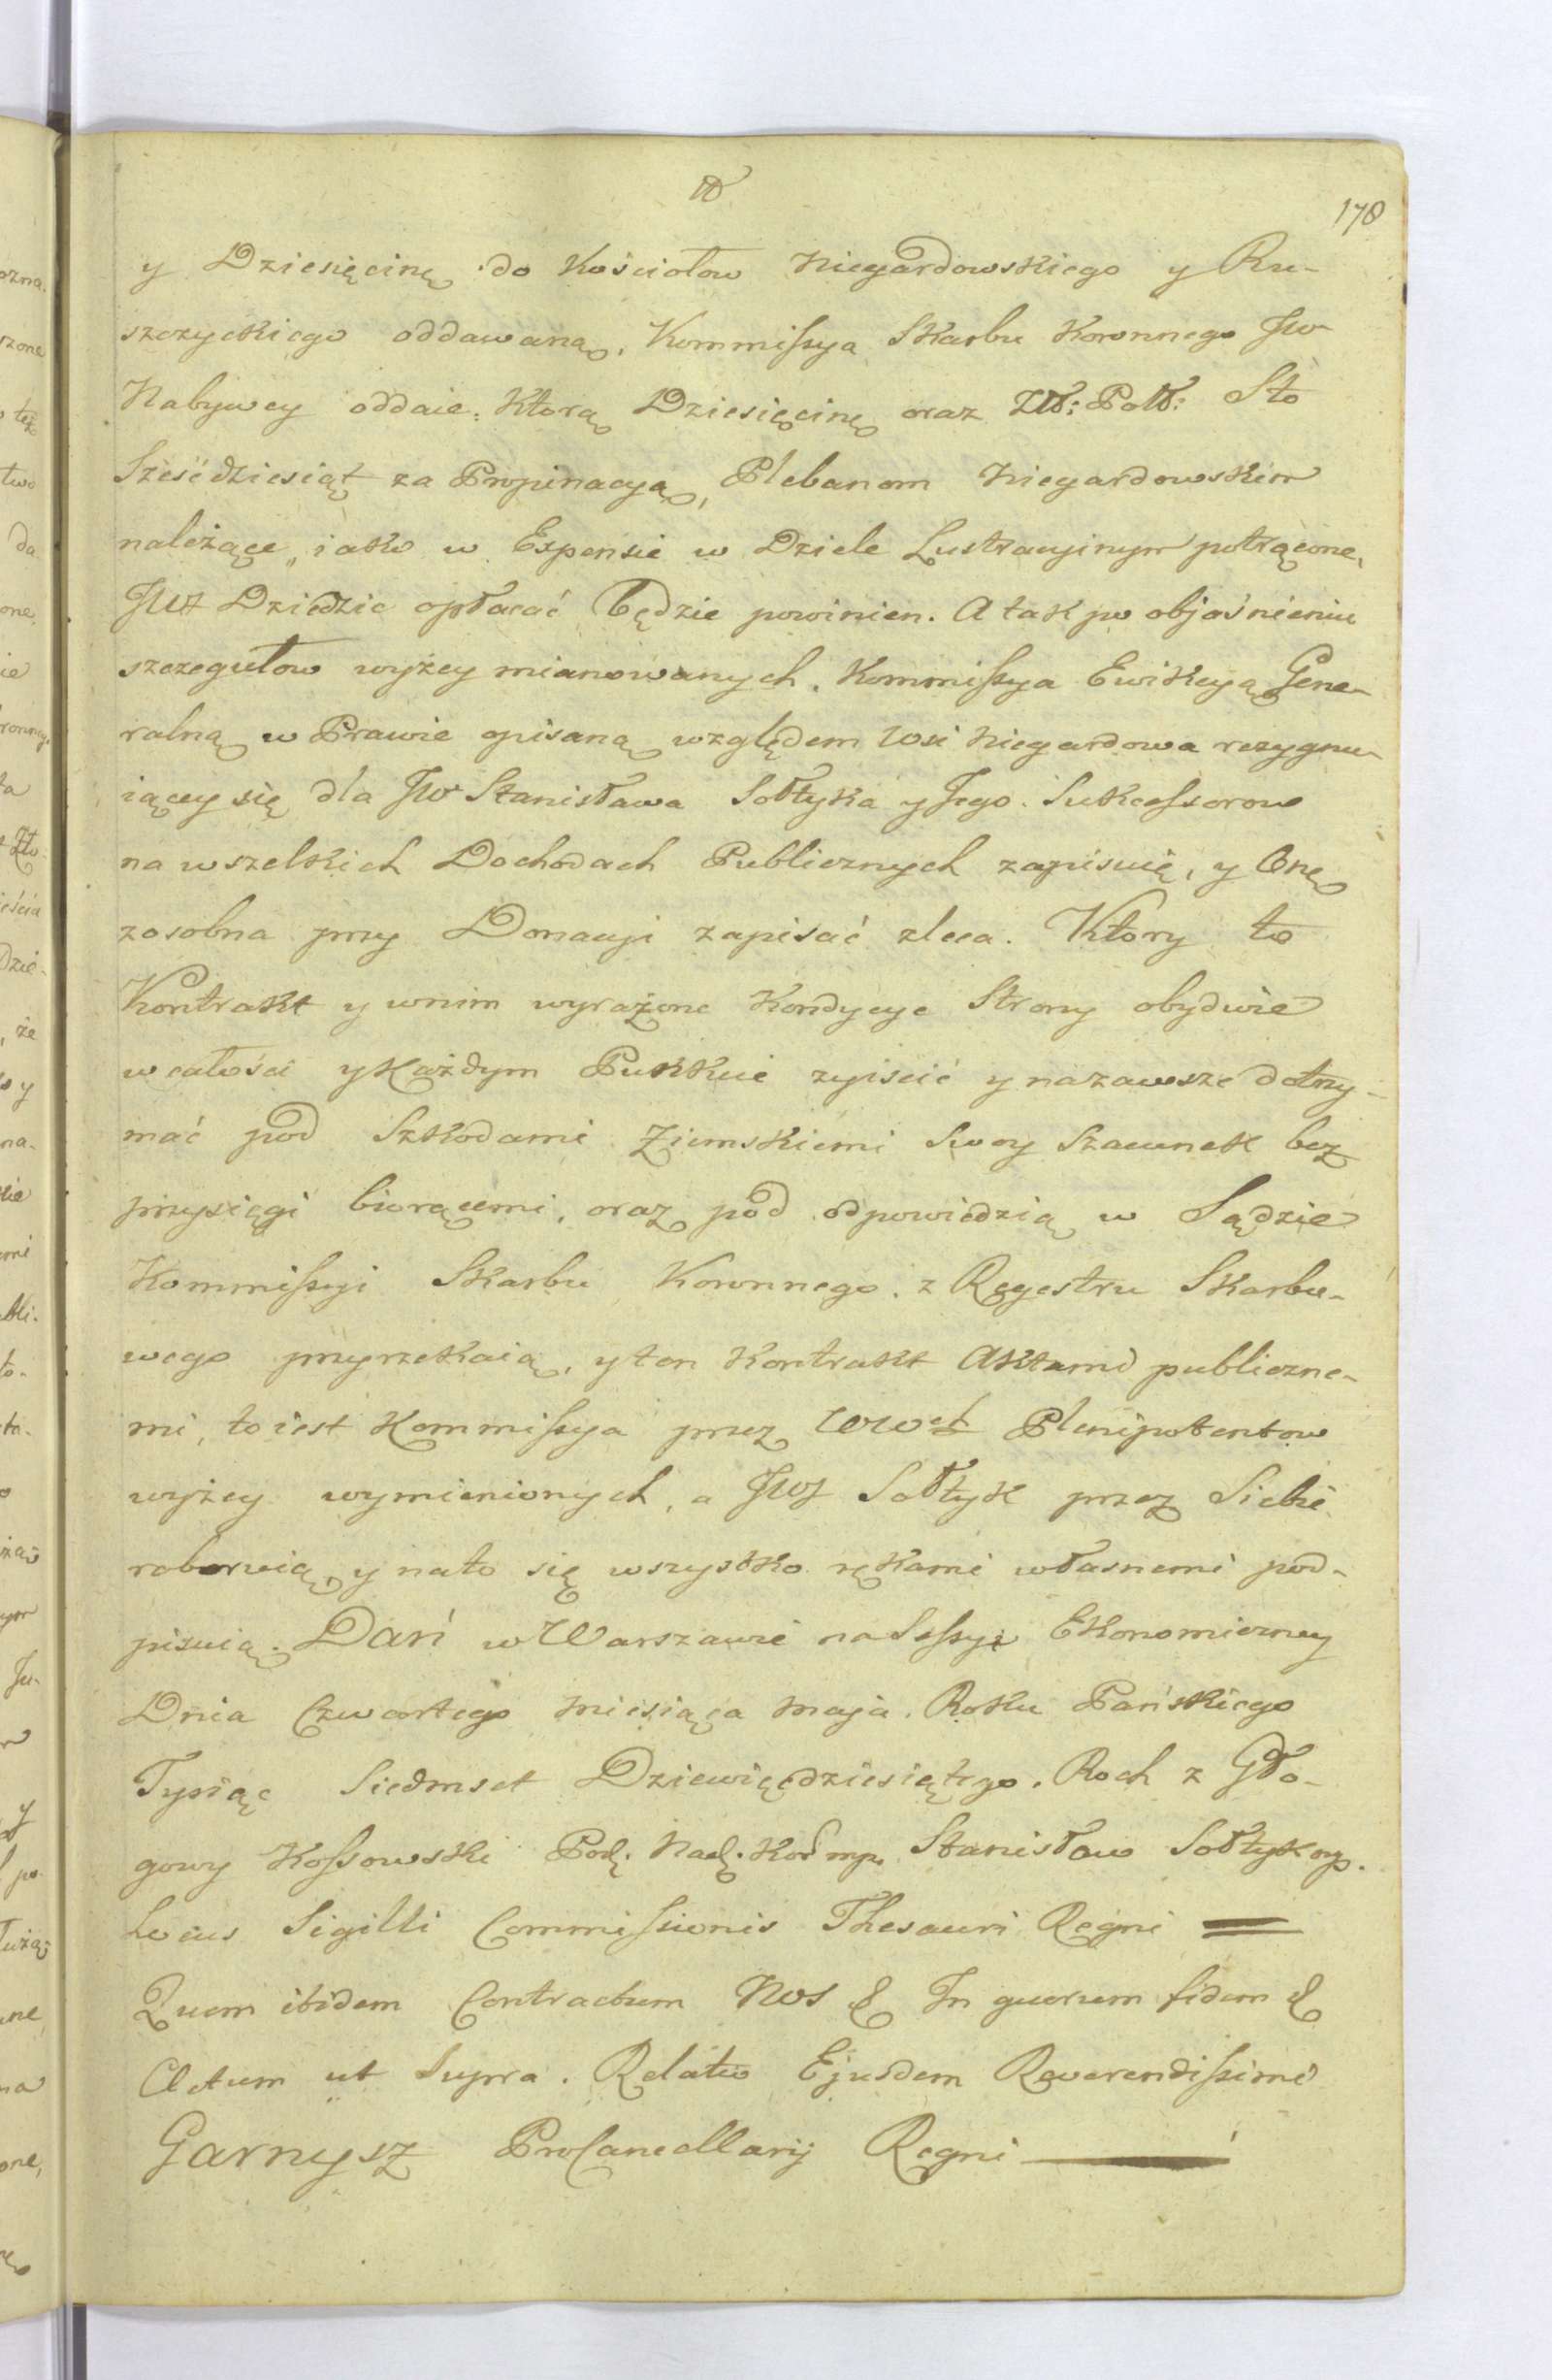 178
y Dziesięcinę do Kościołow Niegardowskiego y Ru-
szczyckiego oddawaną, Kommissya Skarbu Koronnego JW
Nabywcy oddaie: Ktorą Dziesięcinę oraz Zł: Pol: Sto
Sześćdziesiąt za Propinacyą, Plebanom Niegardowskim
należące, iako w Expensie w Dziele Lustracyinym potrącone,
JW Dziedzic opłacać będzie powinien. A tak po objaśnieniu
szczegułow wyżey mianowanych, Kommissya Ewikcyą Gene-
ralną w Prawie opisaną względem Wsi Niegardowa rezygnu-
iącey się dla JW Stanisława Sołtyka y Jego Sukcessorow
na wszelkich Dochodach Publicznych zapisuię, y Onę
zosobna przy Donacyi zapisać zleca. Ktory to
Kontrakt y wnim wyrażone Kondycye Strony obydwie
w całości y Każdym Punkcie zyiscić y nazawsze dotrzy-
mać pod Szkodami Ziemskiemi Swoy Szacunek bez
przysięgi biorącemi, oraz pod odpowiedzią w Sądzie
Kommissyi Skarbu Koronnego z Regestru Skarbo-
wego przyrzekaią, y ten Kontrakt Aktami publiczne-
mi, to iest Kommissya przez WWch Plenipotentow
wyżey wymienionych, a JW Sołtyk przez Siebie
roboruią, y nato się wszystko rękami własnemi pod-
pisuią. Dań w Warszawie na Sessyi Ekonomiczney
Dnia Czwartego Miesiąca Maja, Roku Pańskiego
Tysiąc Siedmset Dziewięćdziesiątego. Roch z Gło-
gowy Kossowski Pod: Nad: Kor mp. Stanisław Sołtyk mp.
Locus Sigilli Commissionis Thesauri Regni
Quem ibidem Contractum Nos & In quorum fidem &
Actum ut Supra. Relatio Ejusdem Reverendissimi
Garnysz ProCancellarij Regni